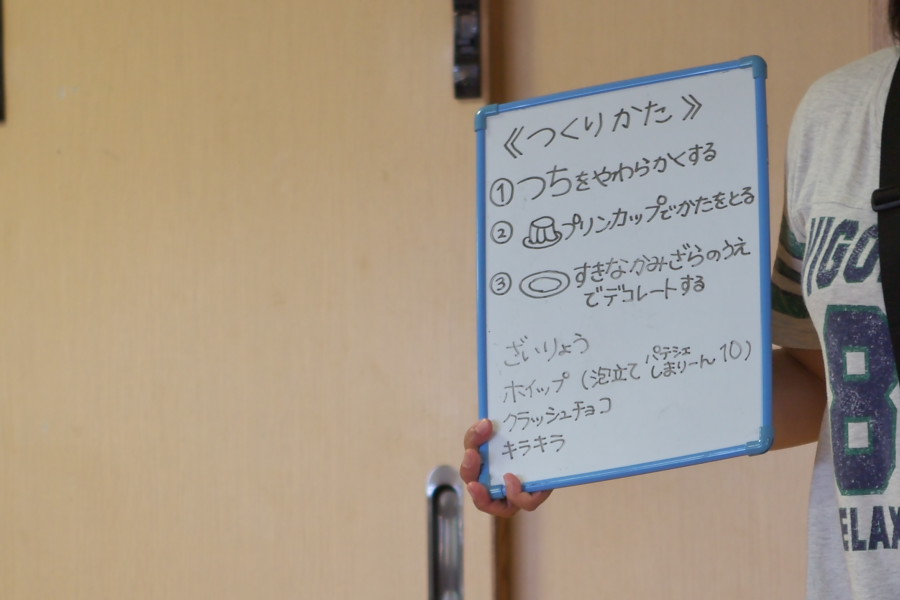 《つくりかた》
① つちをやわらかくする
② プリンカップでかたをとる
③ すきなかみざらのうえ
でデコレートする
ざいりょう
ホイップ (泡立て パテシエ しまりーん 10)
クラッシュチョコ
キラキラ
8